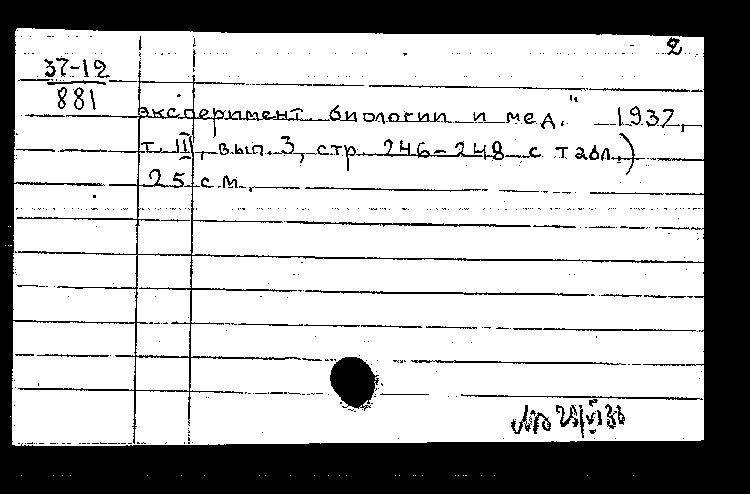 2
37-12
881
эксперимент. биологии и мед." 1937,
т. II, вып. 3, стр. 246-248 с табл.)
25 см.